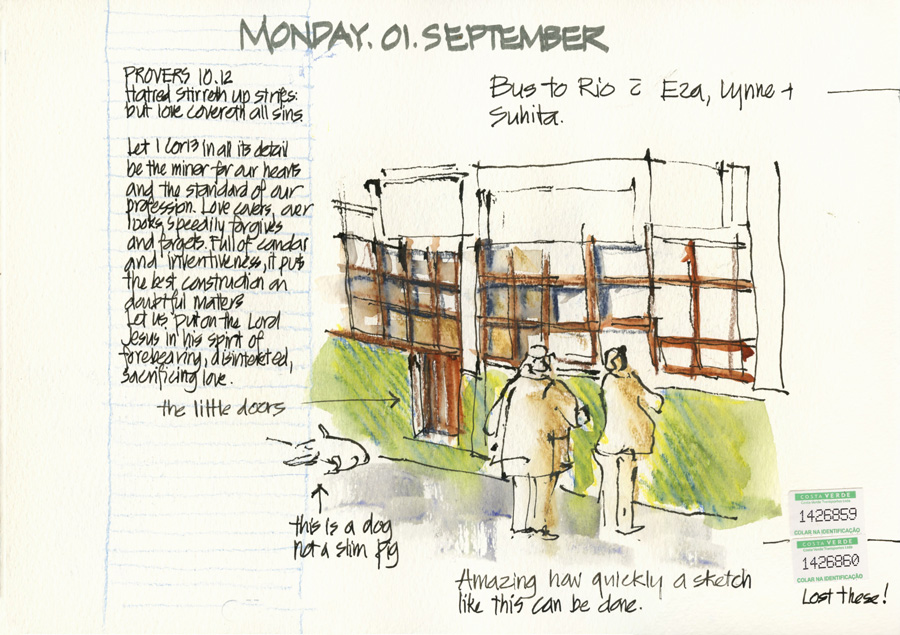 MONDAY. 01. SEPTEMBER
PROVERS 10.12
Hatred stirreth up strifes:
but love covereth all sins
Let 1 Cor13 in all its detail
be the mirror for our hearts
and the standard of our
profession. Love covers, over
looks, speedily forgives
and forgets. Full of candar
and inventiveness, it puts
the best construction on
doubtful matters
Let us put on the Lord
Jesus in his spirit of
forebearing, disintereted,
sacrificing love.
Bus to Rio c̄ Eza, Lynne +
Suhita.
the little doors
this is a dog
not a slim pig
Amazing how quickly a sketch
like this can be done.
COSTA VERDE
1426859
COLAR NA IDENTIFICAÇÃO
COSTA VERDE
1426860
COLAR NA IDENTIFICAÇÃO
Lost these!